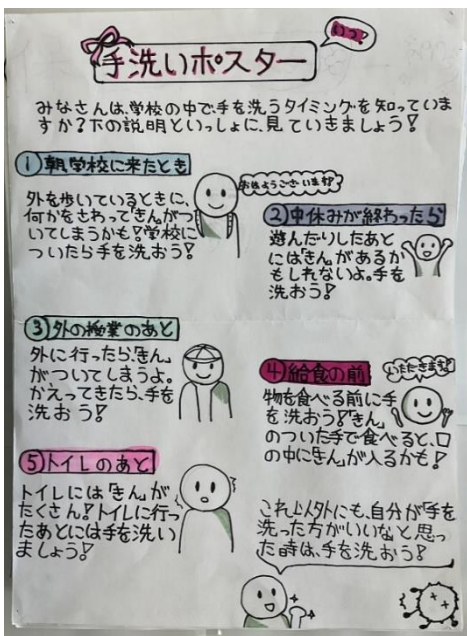 いつ?
手洗いポスター
みなさんは、学校の中で手を洗うタイミングを知っていま
すか?下の説明といっしょに、見ていきましょう!
①朝学校に来たとき
おはようございます!
外を歩いているときに、
何かをさわって「きん」がつ
いてしまうかも!学校に
ついたら手を洗おう!
②中休みが終わったら
遊んだりしたあと
には「きん」があるか
もしれないよ。手を
洗おう!
③外の授業のあと
外に行ったら「きん」
がついてしまうよ。
かえってきたら、手を
洗おう!
④給食の前
いただきます!
物を食べる前に手
を洗おう!「きん」
のついた手で食べると、口
の中に「きん」が入るかも!
⑤トイレのあと
トイレには「きん」が
たくさん!トイレに行っ
たあとには手を洗い
ましょう!
これ以外にも、自分が「手を
洗った方がいいな」と思っ
た時は、手を洗おう!